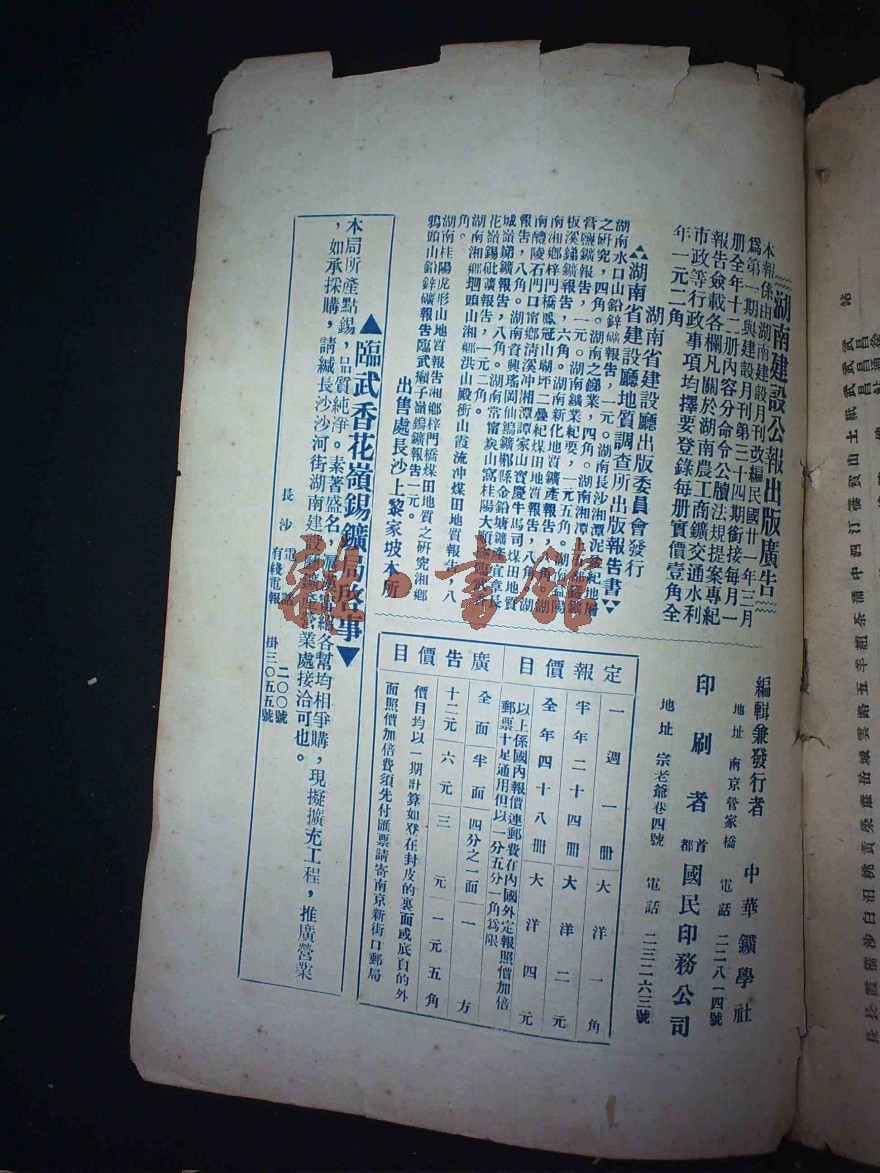 湖南建設公報出版廣告
本報係由湖南建設月刊改編民國廿一年三月
爲第一期與建設月刊第三十四期銜接每月一
册全年十二册內容分命令公牘法規提案專紀
報告僉載各欄凡關於湖南農工商鑛交通水利
市政等行政事項均擇要登錄每册實價壹角全
年一元二角
湖南省建設廳出版委員會發行
湖南省建設廳地質調查所出版報告書
湖南水口山鉛鋅礦報告,一元。湖南長沙湘潭泥盆紀地層
之硏究,四角。湖南之銻業,四角。湖南湘潭上五都錳鑛
管鹽鑛報告,一元。湖南鎢業紀要,一元五角。湖南益陽
板溪銻鑛報告,六角。湖南新化地質鑛產報告,八角。湖
南湘鄉梓門橋鳳冠山坳坪二疊紀煤田地質報告,八角。湖
南醴陵石門口甯鄉淸溪冲湘潭譚家山寶慶牛馬司煤田地質
報告,八角。湖南資興瑤岡仙鎢鑛郴縣金鉛塘鑛產宜章長
城嶺銻鑛報告,八角。湖南常甯炭山窩桂陽大順
花嶺錫砒礦報告,一元二角。
湖南湘鄉壩頭山湘鄉洪山殿衡山霞流冲煤田地質報告八
角。
湖南桂陽虎形山地質報告湘鄉梓門橋煤田地質之硏究湘鄉
鴉頭山鉛鋅礦報告臨武癩子嶺鎢鑛報告一元。
出售處長沙上黎家坡本所
▲臨武香花嶺錫鑛局啓事▼
本局所產點錫,品質純淨。素著盛名,各幫均相爭購,現擬擴充工程,推廣營業
,如承採購,請緘長沙沙河街湖南建設廳鑛產營業處接洽可也。
長沙電話 二〇〇號
有綫電報 掛三〇五五號
編輯兼發行者 中華鑛學社
地址 南京管家橋 電話 二二八一四號
印刷者 首都國民印務公司
地址 宗老爺巷四號 電話 二三二六三號
定報價目
一週一册大洋一角
半年二十四册大洋二元
全年四十八册大洋四元
以上係國內報價連郵費在內國外定報照價加倍
郵票十足通用但以一分五分一角爲限
廣告價目
全面 半面 四分之一面 一方
十二元 六元 三元 一元五角
價目均以一期計算如登在封皮的裏面或底頁的外
面照價加倍費須先付匯票請寄南京新街口郵局
新山書館